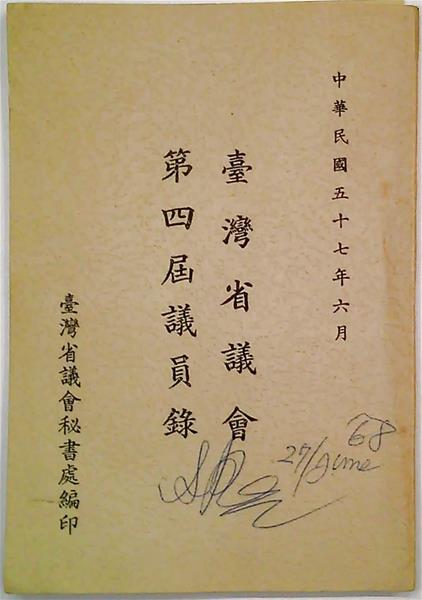 中華民國五十七年六月
臺灣省議會
第四屆議員錄
臺灣省議會秘書處編印
27/June 68